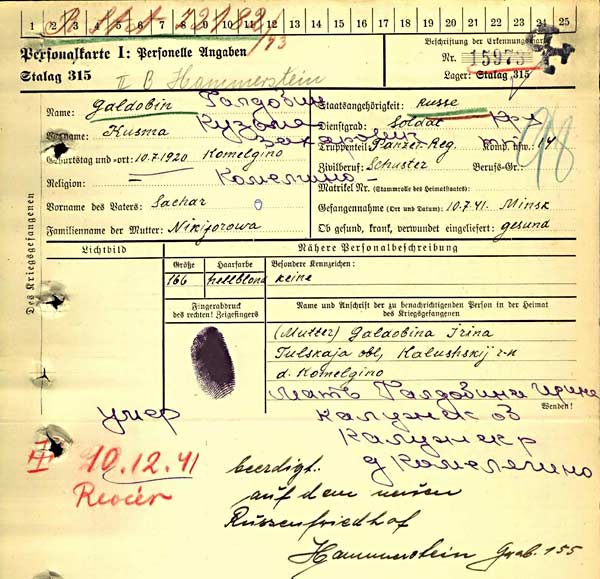 1 2 3 4 5 6 7 8 9 10 11 12 13 14 15 16 17 18 19 20 21 22 23 24 25
Personalkarte I: Personelle Angaben
Beschriftung der Erkennungsmarke
Stalag 315
II B Hammerstein
Nr. 15973
Lager: Stalag 315
Des Kriegsgefangenen
Name: Galdobin
Галдовин
Staatsangehörigkeit: Russe
Vorname: Kusma
Кузьма
Dienstgrad: Soldat
Захарович
Truppenteil: Panzer-Reg. Komd. usw.: 14
98
Geburtstag und -ort: 10.7.1920 Komelgino
Zivilberuf: Schuster Berufs-Gr.:
Religion: =
Комелгино
Matrikel Nr. (Stammrolle des Heimatstaates):
Vorname des Vaters: Sachar
Gefangennahme (Ort und Datum): 10.7.41. Minsk
Familienname der Mutter: Nikiforowa
Ob gesund, krank, verwundet eingeliefert: gesund
Lichtbild
Nähere Personalbeschreibung
Größe Haarfarbe Besondere Kennzeichen:
166 hellblond keine
Fingerabdruck
des rechten! Zeigefingers
Name und Anschrift der zu benachrichtigenden Person in der Heimat
des Kriegsgefangenen
(Mutter) Galdobina Irina
Tulskaja obl, Kalushskij r-n
d. Komelgino
Мать Галдовина Ирина
Wenden!
умер
Калужск
Калужск р
д Комелягино
10.12.41
beerdigt:
auf dem neuen
Russenfriedhof
Hammerstein Grab. 155